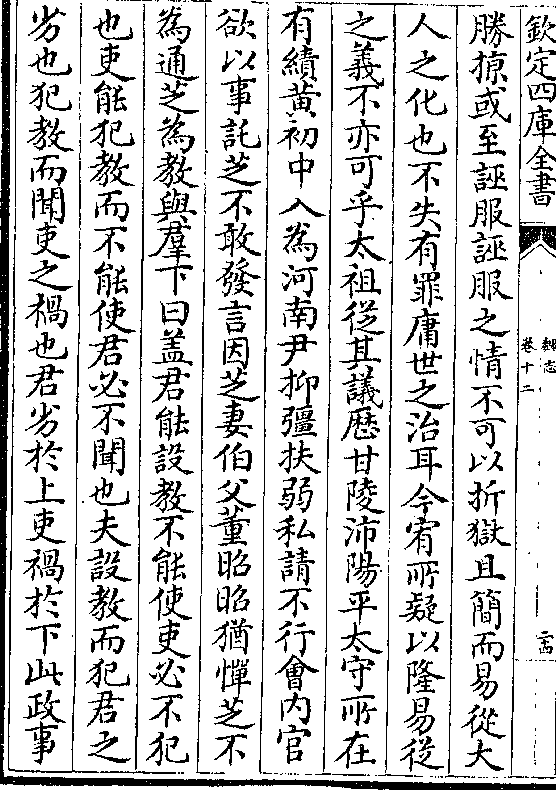 欽定四庫全書
魏志
卷十二
勝掠或至誣服誣服之情不可以折獄且簡而易從大
人之化也不失有罪庸世之治耳今宥所疑以隆易從
之義不亦可乎太祖從其議歷甘陵沛陽平太守所在
有績黃初中入為河南尹抑彊扶弱私請不行會內官
欲以事託芝不敢發言因芝妻伯父董昭昭猶憚芝不
為通芝為教與羣下曰蓋君能設教不能使吏必不犯
也吏能犯教而不能使君必不聞也夫設教而犯君之
劣也犯教而聞吏之禍也君劣於上吏禍於下此政事